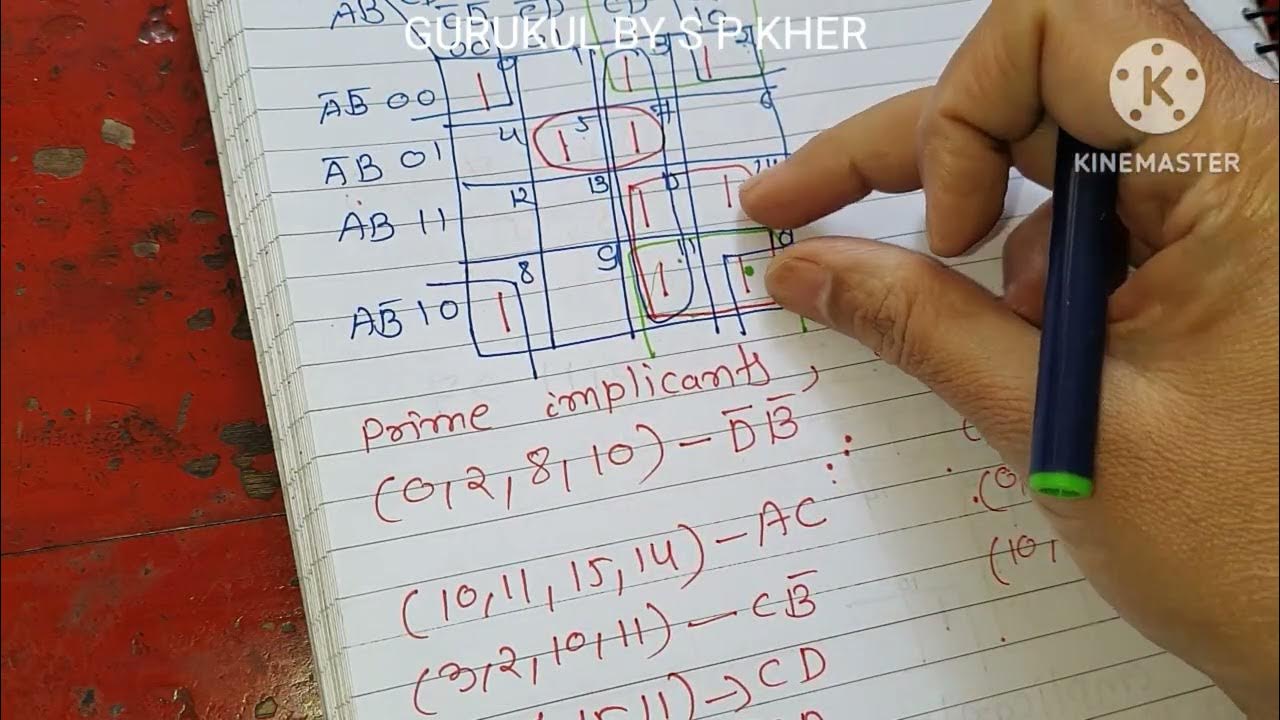 GURUKUL BY S P KHER
K
KINEMASTER
AB CD
00 3
ĀB̄ 00 1 0 1 1 1
4 5 7 6
ĀB 01 1 1
12 13 15 14
AB 11 1 1
8 9 11 10
AB̄ 10 1 1 1
Prime implicants,
(0,2,8,10) – D̄B̄
(10,11,15,14) – AC
(3,2,10,11) – CB̄
15,11) → CD
(0,
(10,